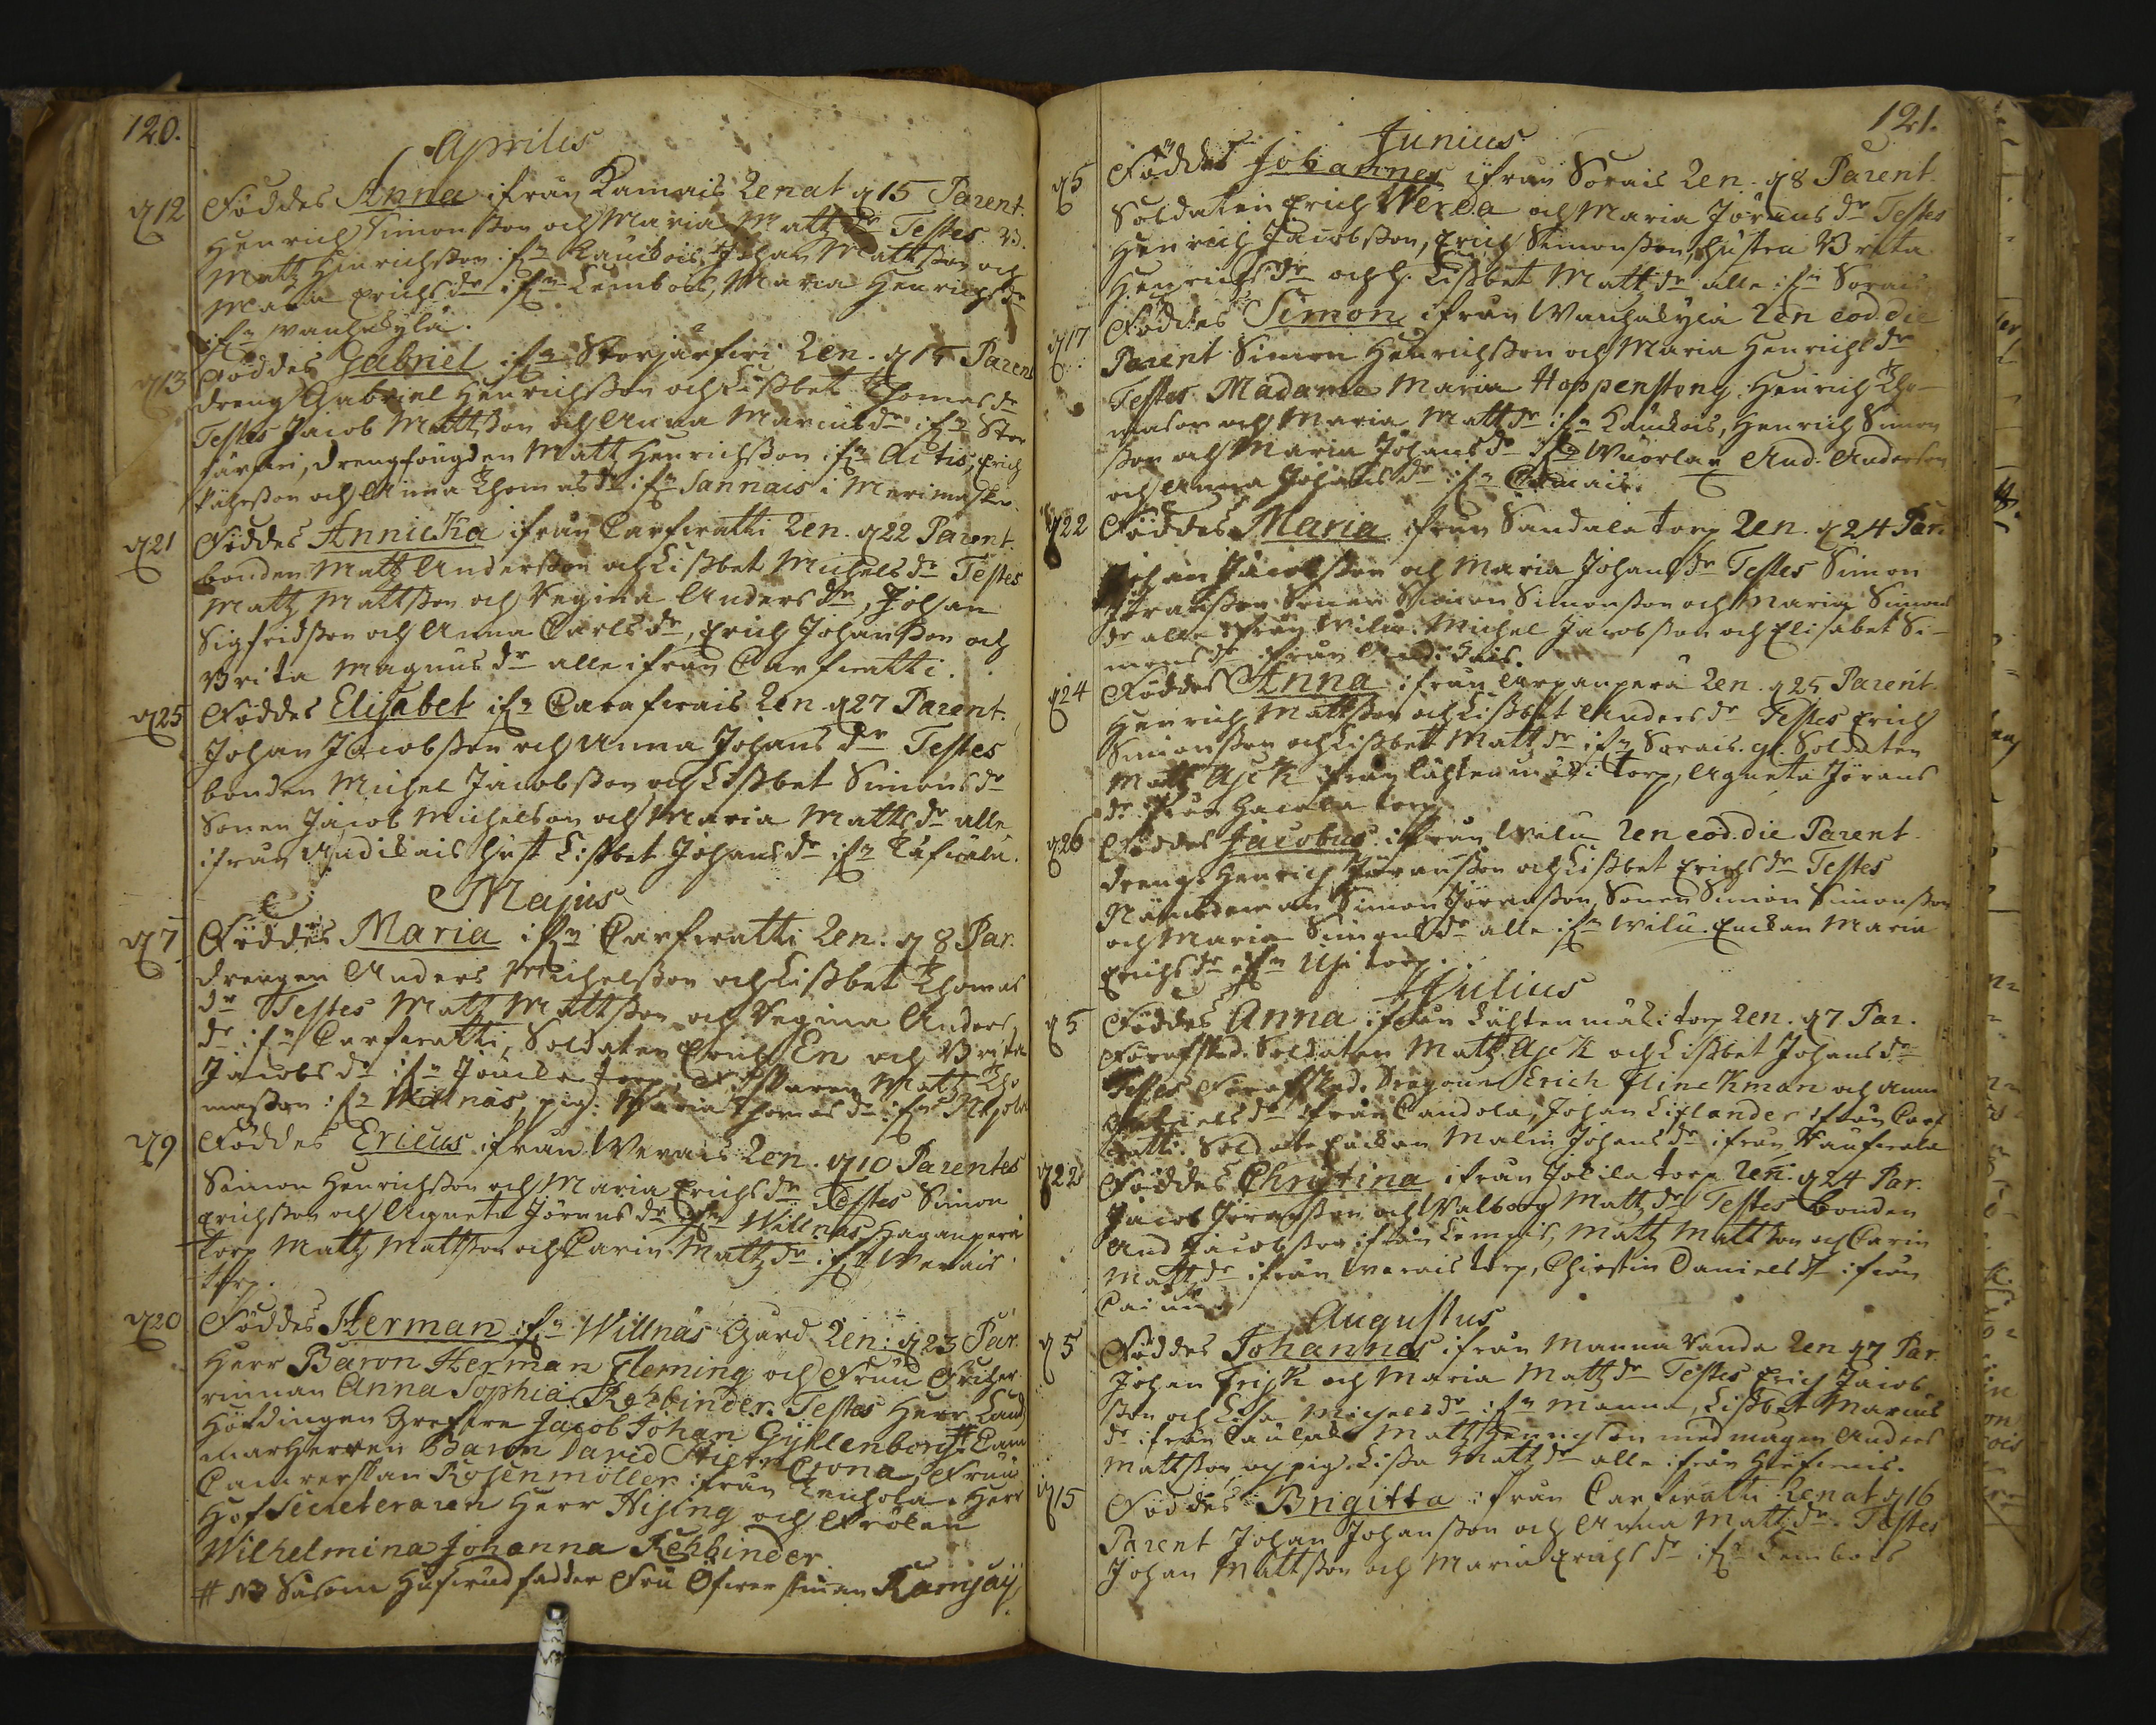 120.
Aprilis
d 12 Föddes Anna ifrån Kamais Renat d 15 Parent.
Henrich Simonsson och Maria Matz dr Testes B.
Matz Hinrichsson ifn Kauckois, Johan Mattsson och
Maria Erichs dr ifn Lembois, Maria Henrichs dr
ifn Wanhakylä.
d 13 Föddes Gabriel ifn Storjärfwi Ren. d 15 Parent
dreng Gabriel Henrichsson och Lissbet Thomas dr
Testes Jacob Mattsson och Anna Marcus dr ifn Stor
järfwi, drengfougden Matz Henrichsson ifn Actis, Erich
och Anna Thomas dr ifn Sannais i Merimasku.
d 21 Föddes Annicka ifrån Carfwatti Ren. d 22 Parent.
bonden Matz Andersson och Lissbet Michels dr Testes
Matz Mattsson och Regina Anders dr, Johan
Sigfridsson och Anna Carls dr, Erich Johansson och
Brita Magnus dr alle ifrån Carfwatti.
d 25 Föddes Elisabet ifn Carafwais Ren d 27 Parent.
Johan Jacobsson och Anna Johans dr Testes
bonden Michel Jacobsson och Lissbet Simons dr
Sonen Jacob Michelson och Maria Matts dr alle
ifrån Andickais hust Lissbet Johans dr ifn
Majus
d 7 Föddes Maria ifn Carfwatti Ren. d 8 Par.
drengen Anders Michelsson och Lissbet Thomas
dr Testes Matz Mattsson och Regina Anders
dr ifn Carfwatti, Soldaten Erich En och Brita
Jacobs dr ifn torp, Matz Tho
masson ifn Willnäs, pig. Maria Thomas dr ifn
d 9 Föddes Ericus ifrån Werais Ren. d 10 Parentes
Simon Henrichsson och Maria Erichs dr Testes Simon
Erichsson och Agneta Jörans dr ifn Willnäs Haganperä
torp Matz Mattsson och Carin Matz dr ifn Werais
torp.
d 20 Föddes Herman ifn Willnäs Gård Ren: d 23 Par.
Herr Baron Herman Fleming och Fruu
rinnan Anna Sophia Rehbinder. Testes Herr Land
Höfdingen Grefwe Jacob Johan Gyllenborg # Cam
marherren Baron David Stiern Crona, Fruu
Camrerskan Rosenmöller ifrån Lemhola. Herr
Hof Secreteraren Herr Hising och Fröken
Wilhelmina Johanna Rehbinder.
# NB Såsom Hufwudfadder Fru Öfwerstinnan Ramsay
121.
Junius
d 5 Föddes Johannes ifrån Sorais Ren. d 8 Parent.
Soldaten Erich Wereda och Maria Jörans dr Testes
Henrich Jacobsson, Erich Simonsson, hustru Brita
Henrichs dr och h. Lissbet Matz dr alle ifn Sorais
d 17 Föddes Simon ifrån Wanhakylä Ren eod. die
Parent Simon Henrichsson och Maria Henrichs dr
Testes Madame Maria Hoppensteng. Henrich Tho-
masson och Maria Matts dr ifn Kauckois, Henrich Simon
sson och Maria Johans dr ifn Wuorlax And. Anderson
och Anna Johans dr ifn Camais.
d 22 Föddes Maria ifrån Sandala torp Ren. d 24 Par.
Johan Jacobsson och Maria Johans dr Testes Simon
Jöransson Sonen Simon Simonsson och Maria Simons
dr alle ifrån Wilu. Michel Jacobsson och Elisabet Si-
mons dr ifrån Andickais.
d 24 Föddes Anna ifrån Arpanperä Ren. d 25 Parent.
Henrich Mattsson och Lissbet Anders dr Testes Erich
Simonsson och Lissbet Matz dr ifn Sorais. gl. Soldaten
Matz Ajek ifrån Lähtenmäki torp, Agneta Jörans
dr ifrån torp.
d 26 Föddes Jacobus ifrån Wilu Ren eod. die Parent
dreng. Henrich Jöransson och Lissbet Erichs dr Testes
Nämndeman Simon Jöransson, Sonen Simon Simonsson
och Maria Simons dr alle ifn Wilu. Enckan Maria
Erichs dr ifn torp.
Julius
d 5 Föddes Anna ifrån Lähtenmäki torp Ren. d 7 Par.
Förafsked. Soldaten Matz Ajek och Lissbet Johans dr
Testes Förafsked. Dragoun Erich Flinckman och Anna
Gabriels dr ifrån Candola, Johan Liflander ifrån Carf
watti. Soldate Enckan Malin Johans dr ifrån
d 22 Föddes Christina ifrån Jokila torp Ren. d 24 Par.
Jacob Jöransson och Walborg Matz dr Testes bonden
And Jacobsson ifrån Lemais, Matz Mattsson och Carin
Matz dr ifrån Werais torp, Chirstin Daniels dr ifrån
Augustus
d 5 Föddes Johannes ifrån Manna Randa Ren d 7 Par.
Johan Frisk och Maria Matz dr Testes Erich Jacob
sson och Lisa Michels dr ifn Manna, Lissbet Marcus
dr ifrån Matz Henrichson med mågen Anders
Mattsson och pig. Lisa Matz dr alle ifrån
d 15 Föddes Brigitta ifrån Carfwatti Renat d 16
Parent Johan Johansson och Anna Matz dr. Testes
Johan Mattsson och Maria Erichs dr ifn Lembois